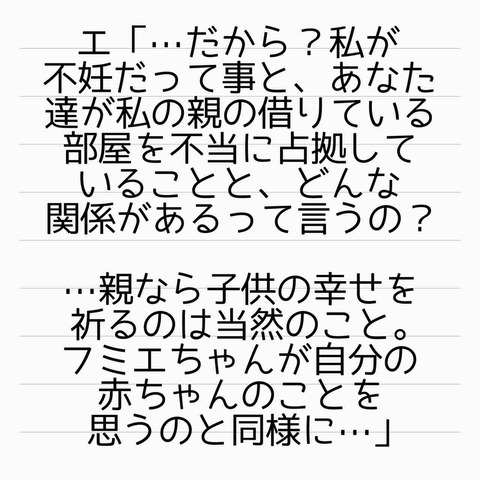 エ「…だから？私が
不妊だって事と、あなた
達が私の親の借りている
部屋を不当に占拠して
いることと、どんな
関係があるって言うの？
…親なら子供の幸せを
祈るのは当然のこと。
フミエちゃんが自分の
赤ちゃんのことを
思うのと同様に…」